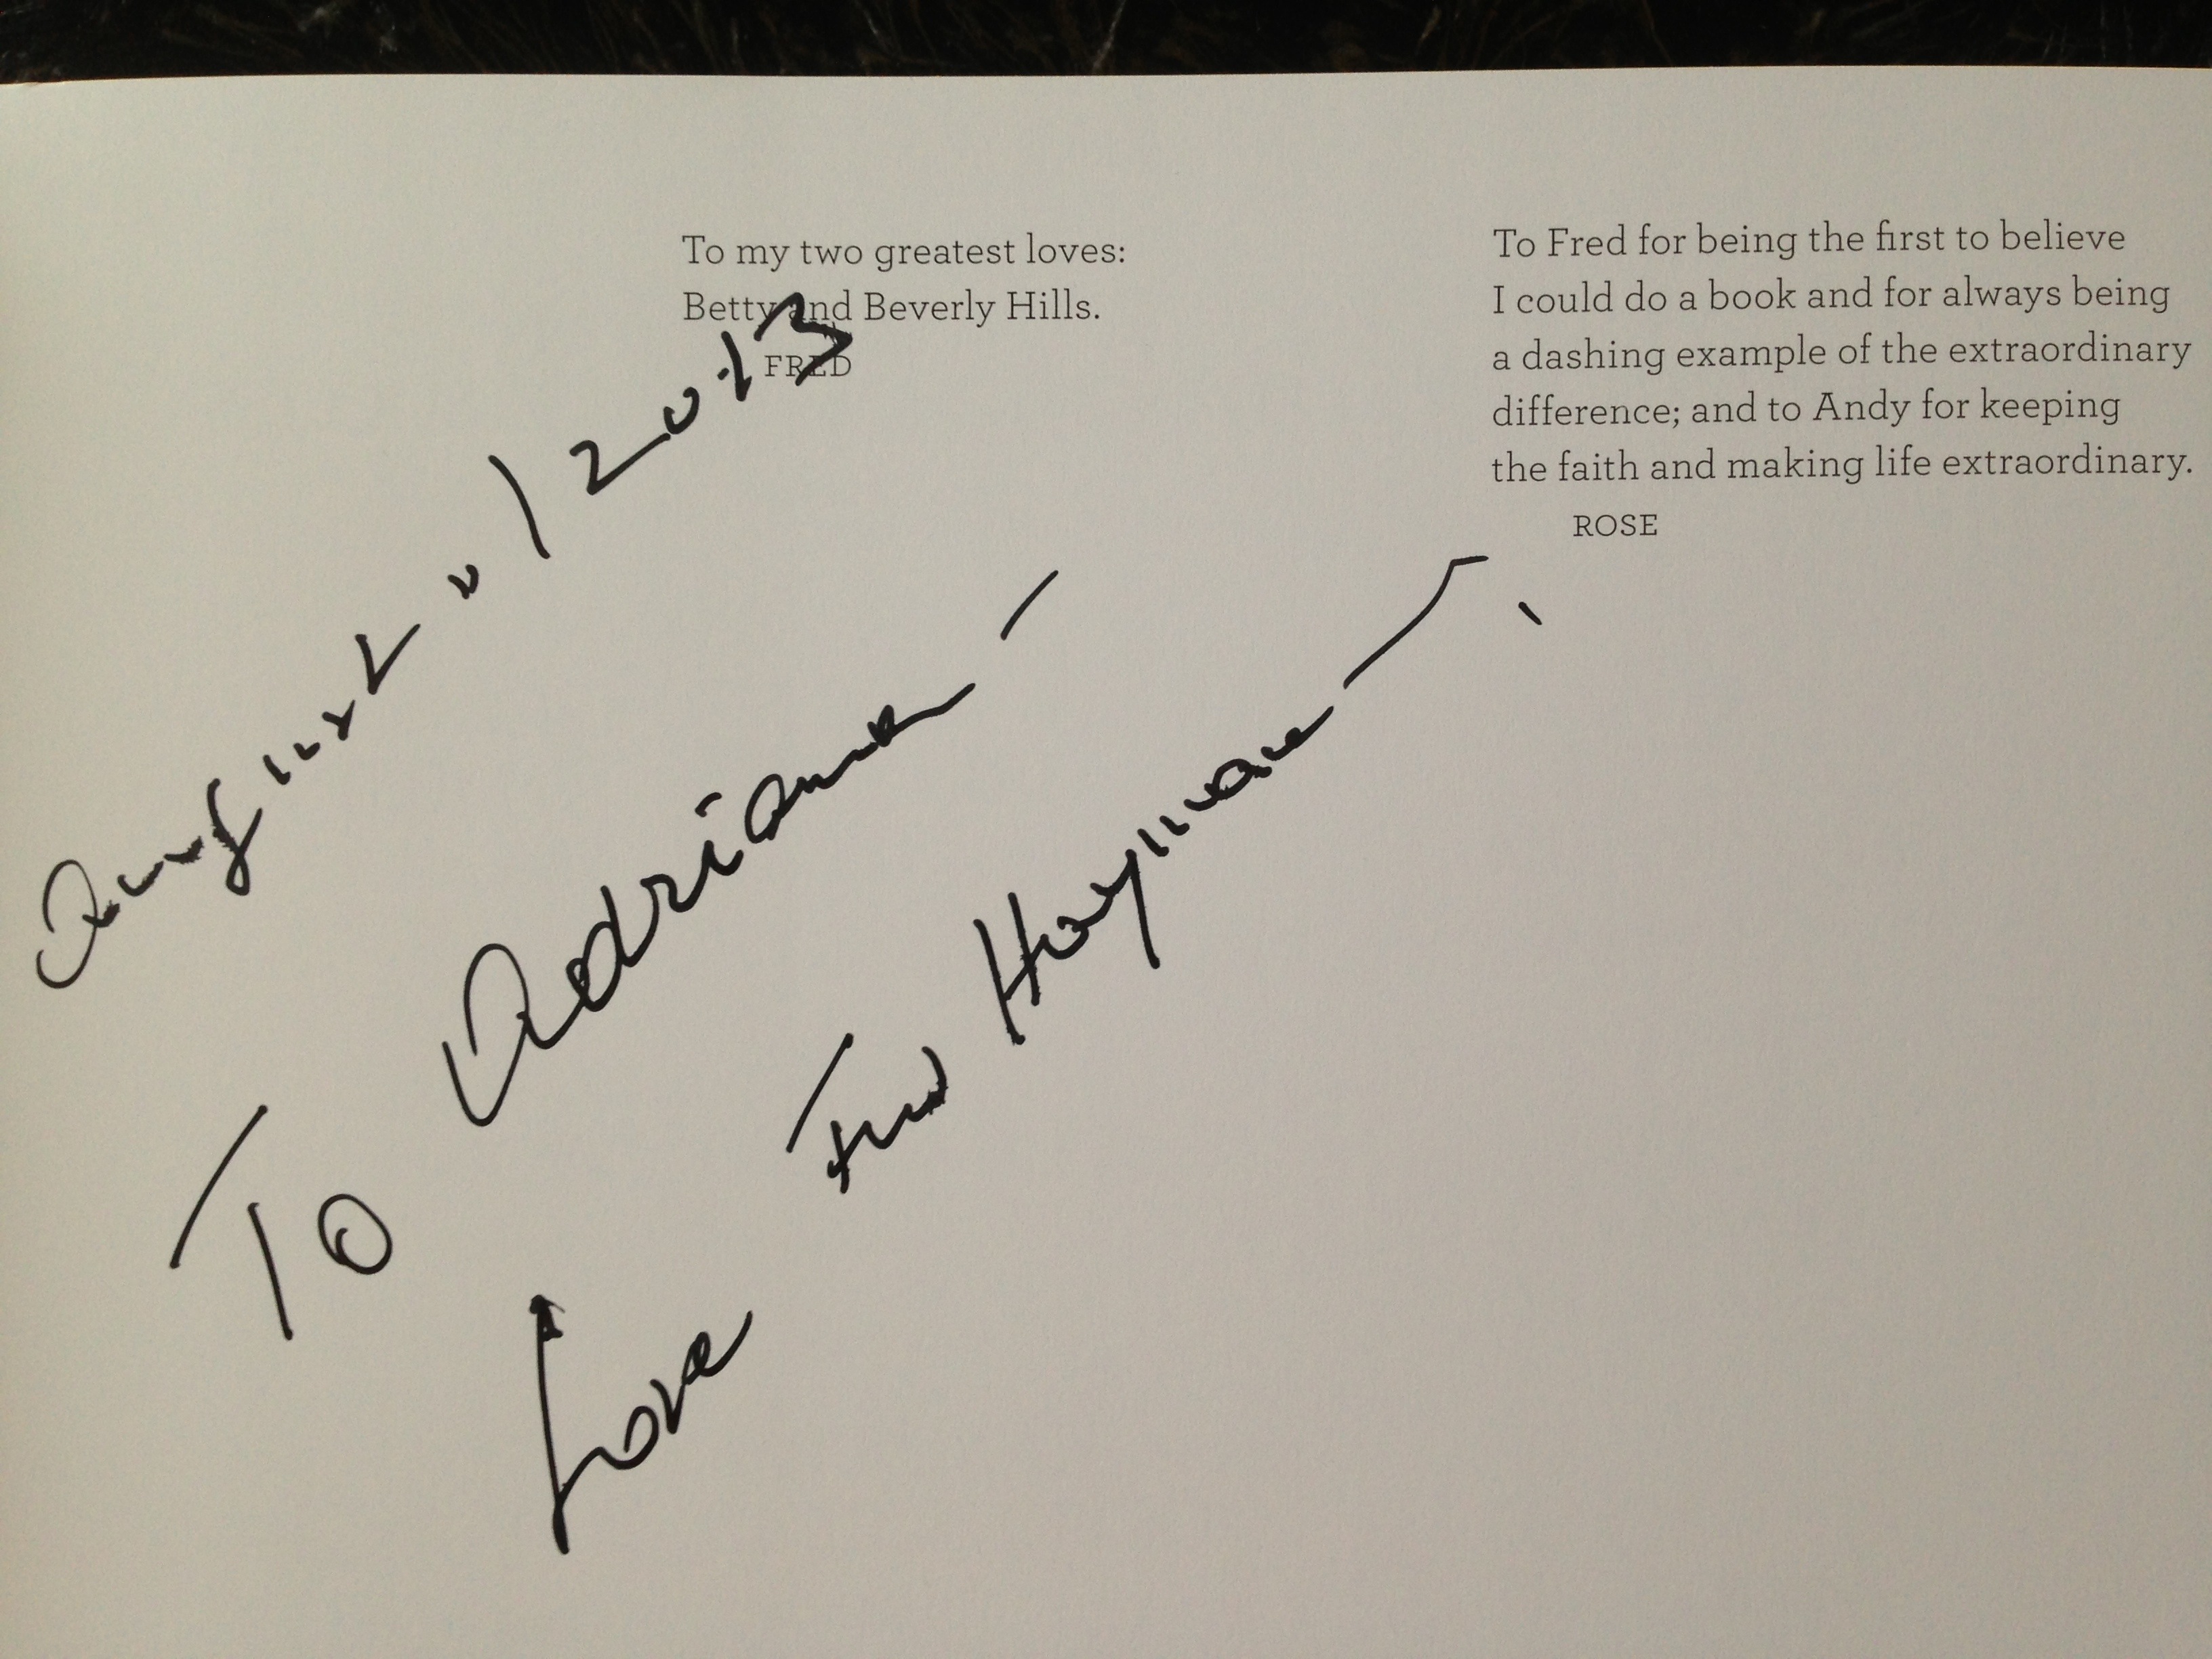 To my two greatest loves:
Betty and Beverly Hills.
FRED
To Fred for being the first to believe
I could do a book and for always being
a dashing example of the extraordinary
difference; and to Andy for keeping
the faith and making life extraordinary.
ROSE
August 2013
To Adrianna —
Love Fred Hayman